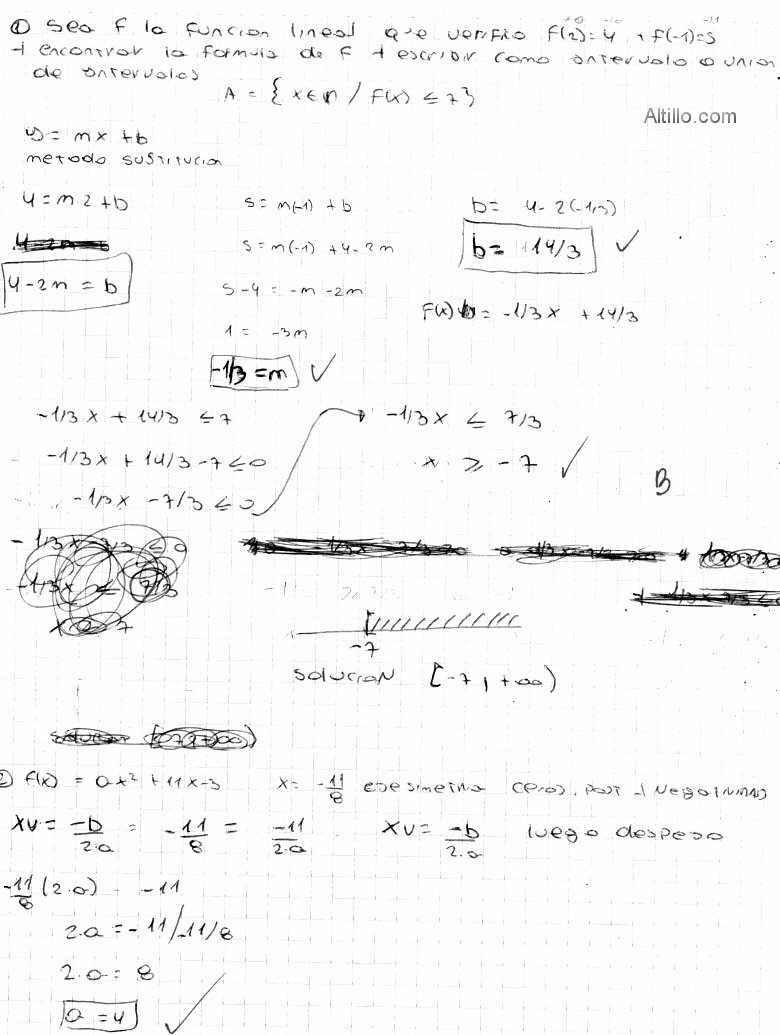 ① Sea f la funcion lineal que verifia f(2)=4 , f(-1)=5
+ encontrar la formula de f + escribir como intervalo o union
de intervalos
A = { x∈ / f(x) ≤ 7 }
Altillo.com
y = mx + b
metodo sustitucion
4 = m 2 + b
4 - 2m = b
5 = m(-1) + b
5 = m(-1) + 4 - 2m
5 - 4 = -m - 2m
1 = -3m
-1/3 = m ✓
b = 4 - 2(-1/3)
b = 14/3 ✓
f(x) = -1/3x + 14/3
-1/3x + 14/3 ≤ 7
-1/3x + 14/3 - 7 ≤ 0
-1/3x - 7/3 ≤ 0
-1/3x ≤ 7/3
x ≥ -7 ✓
B
-7
solucion [-7, +∞)
2) f(x) = ax² + 11x - 3 x = -11/8 eje simetria ceros, post
xv = -b/2.a = -11/8 = -11/2.a xv = -b/2.a luego despejo
-11/8 (2.a) -11
2.a = -11/-11/8
2.a = 8
a = 4 ✓